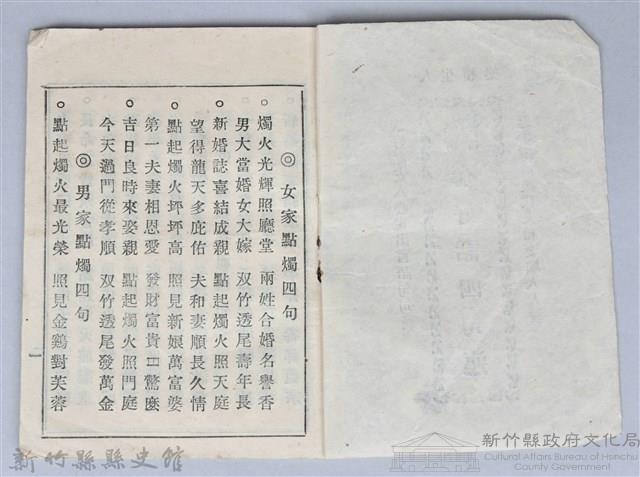 ◎女家點燭四句
○燭火光輝照廳堂 兩姓合婚名譽香
男大當婚女大嫁 双竹透尾壽年長
○新婚誌喜結成親 點起燭火照天庭
望得龍天多庇佑 夫和妻順長久情
○點起燭火坪坪高 照見新娘萬富婆
第一夫妻相恩愛 發財富貴驚麼
○吉日良時來娶親 點起燭火照門庭
今天過門從孝順 双竹透尾發萬金
◎男家點燭四句
○點起燭火最光榮 照見金鷄對芙蓉
新竹縣縣史館
新竹縣政府文化局
Cultural Affairs Bureau of Hsinchu
County Government